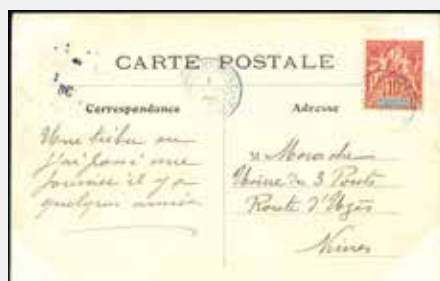 CARTE POSTALE
Correspondance
Adresse
Une tribu ou
j'ai passé une
journée il y a
quelques années
M Morache
Usine des 3 Ponts
Route d'Uzès
Nimes
10